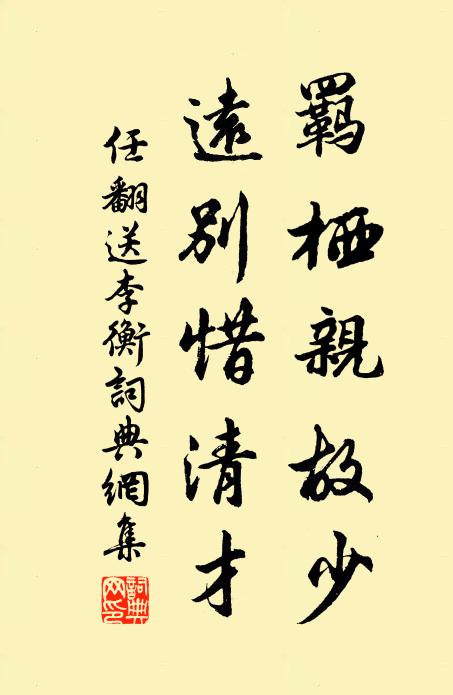 羈栖親故少
遠別惜清才
任翻送李衡詞典網集
詞典